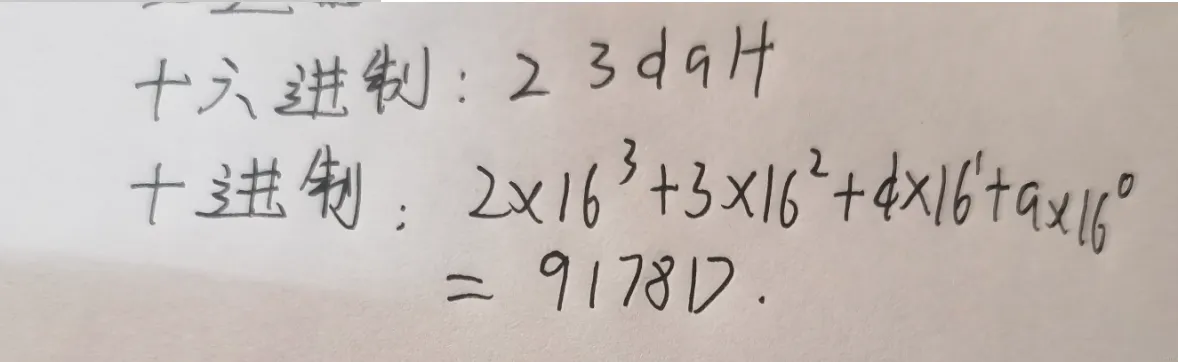 十六进制: 23daH
十进制: 2×16³+3×16²+d×16¹+a×16⁰
= 9178D.